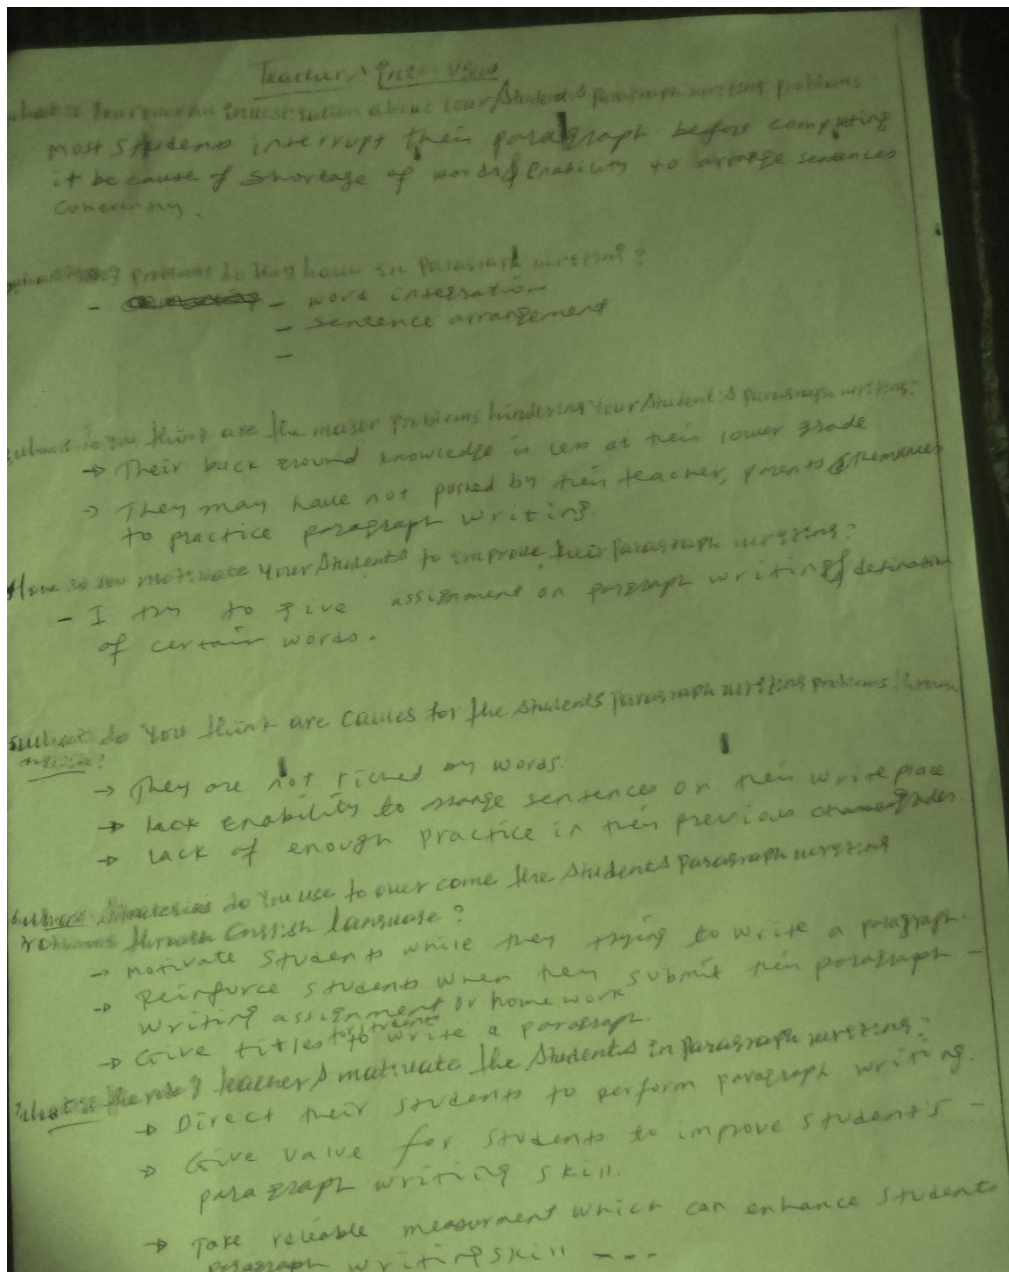 Teachers Interview
your an investigation about your students paragraph writing problems
most students interrupt their paragraph before completing
it because of shortage of words & Enability to arrange sentences
coherently.
problems do they have in paragraph writing?
- - word integration
- sentence arrangement
-
do you think are the major problems hindering your student's paragraph writing?
→ Their back ground knowledge is less at their lower grade
→ They may have not pushed by their teacher, parents & themselves
to practice paragraph writing.
How do you motivate your students to improve their paragraph writing?
- I try to give assignment on paragraph writing & defination
of certain words.
what do you think are causes for the students paragraph writing problems
→ They are not riched by words.
→ lack enability to arrange sentences on their write place
→ lack of enough practice in their previous grades
strategies do you use to over come the students paragraph writing
through English language?
→ motivate students while they trying to write a paragraph.
→ Reinforce students when they submit their paragraph -
writing assignment or home work
→ Give titles for students to write a paragraph.
the role of teachers motivate the students in paragraph writing?
→ Direct their students to perform paragraph writing.
→ Give value for students to improve student's -
paragraph writing skill.
→ Take reliable measurment which can enhance students
paragraph writing skill ---